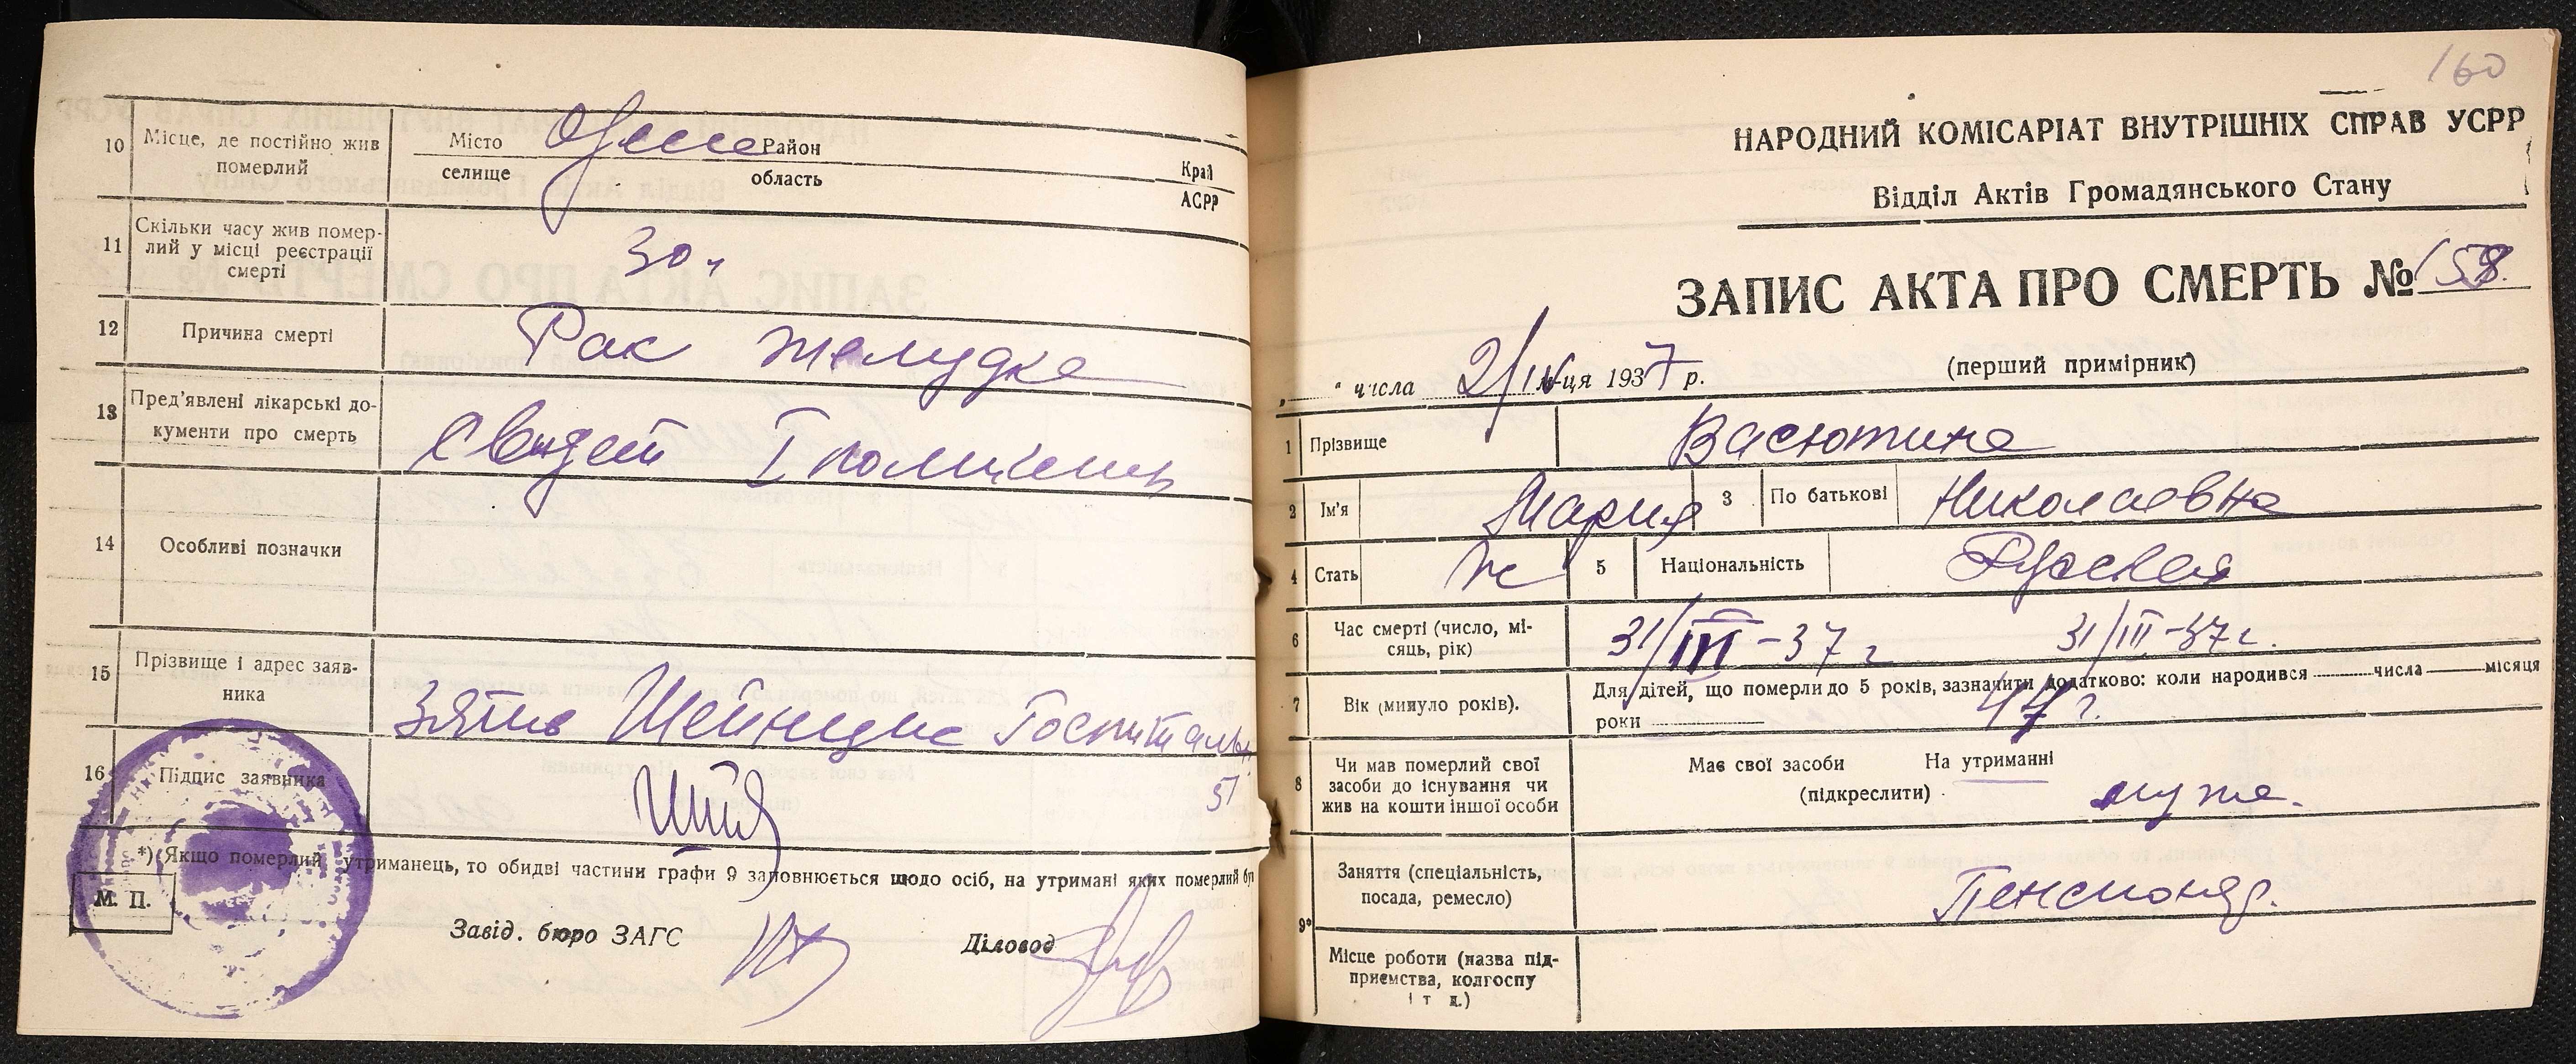 10 Місце, де постійно жив померлий
Місто Одесса Район
селище область
Край
АСРР
11 Скільки часу жив помер-
лий у місці реєстрації
смерті
30 г
12 Причина смерті
Рак желудка
13 Пред'явлені лікарські до-
кументи про смерть
Свидет I поликлин
14 Особливі позначки
15 Прізвище і адрес заяв-
ника
Зять Госпитальн.
51
16 Підпис заявника
*) Якщо померлий утриманець, то обидві частини графи 9 заповнюється щодо осіб, на утримані яких померлий був
М. П.
Завід. бюро ЗАГС
Діловод
160
НАРОДНИЙ КОМІСАРІАТ ВНУТРІШНІХ СПРАВ УСРР
Відділ Актів Громадянського Стану
ЗАПИС АКТА ПРО СМЕРТЬ № 158.
(перший примірник)
" числа 2/IV м-ця 1937 р.
1 Прізвище Васютина
2 Ім'я Мария 3 По батькові Николаевна
4 Стать ж 5 Національність Русская
6 Час смерті (число, мі-
сяць, рік)
31/III-37 г 31/III-37 г.
7 Вік (минуло років).
Для дітей, що померли до 5 років, зазначити додатково: коли народився числа місяця
роки
47 г.
8 Чи мав померлий свої
засоби до існування чи
жив на кошти іншої особи
Має свої засоби На утриманні
(підкреслити)
мужа.
9* Заняття (спеціальність,
посада, ремесло)
Пенсионер.
Місце роботи (назва під-
приємства, колгоспу
і т д.)